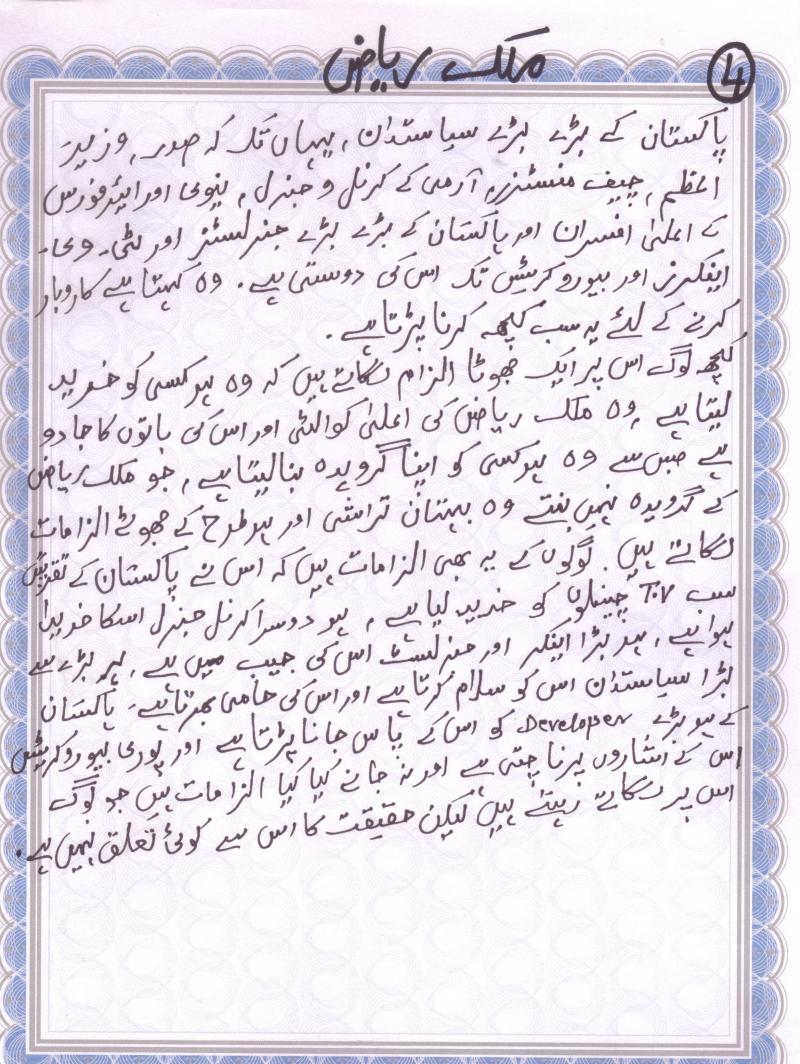 ملک ریاض
4
پاکستان کے بڑے بڑے سیاستدان، یہاں تک کہ صدر، وزیر
اعظم، چیف منسٹرز، آرمی کے کرنل و جنرل، نیوی اور ائیرفورس
کے اعلیٰ افسران اور پاکستان کے بڑے بڑے جنرلسٹز اور ٹی۔وی۔
اینکرز اور بیوروکریٹس تک اس کی دوستی ہے۔ وہ کہتا ہے کاروبار
کرنے کے لئے یہ سب کچھ کرنا پڑتا ہے۔
کچھ لوگ اس پر ایک جھوٹا الزام لگاتے ہیں کہ وہ ہر کسی کو خرید
لیتا ہے، وہ ملک ریاض کی اعلیٰ کوالٹی اور اس کی باتوں کا جادو
ہے جس سے وہ ہر کسی کو اپنا گرویدہ بنا لیتا ہے، جو ملک ریاض
کے گرویدہ نہیں بنتے وہ بہتان تراشی اور ہر طرح کے جھوٹے الزامات
لگاتے ہیں۔ لوگوں کے یہ بھی الزامات ہیں کہ اس نے پاکستان کے تقریباً
سب T.V چینلوں کو خرید لیا ہے، ہر دوسرا کرنل جنرل اسکا خریدا
ہوا ہے، ہر بڑا اینکر اور جنرلسٹ اس کی جیب میں ہے، ہر بڑے سے
بڑا سیاستدان اس کو سلام کرتا ہے اور اس کی حامی بھرتا ہے۔ پاکستان
کے ہر بڑے Developer کو اس کے پاس جانا پڑتا ہے اور پوری بیوروکریٹس
اس کے اشاروں پر ناچتی ہے اور نہ جانے کیا کیا الزامات ہیں جو لوگ
اس پر لگاتے رہتے ہیں لیکن حقیقت کا اس سے کوئی تعلق نہیں ہے۔